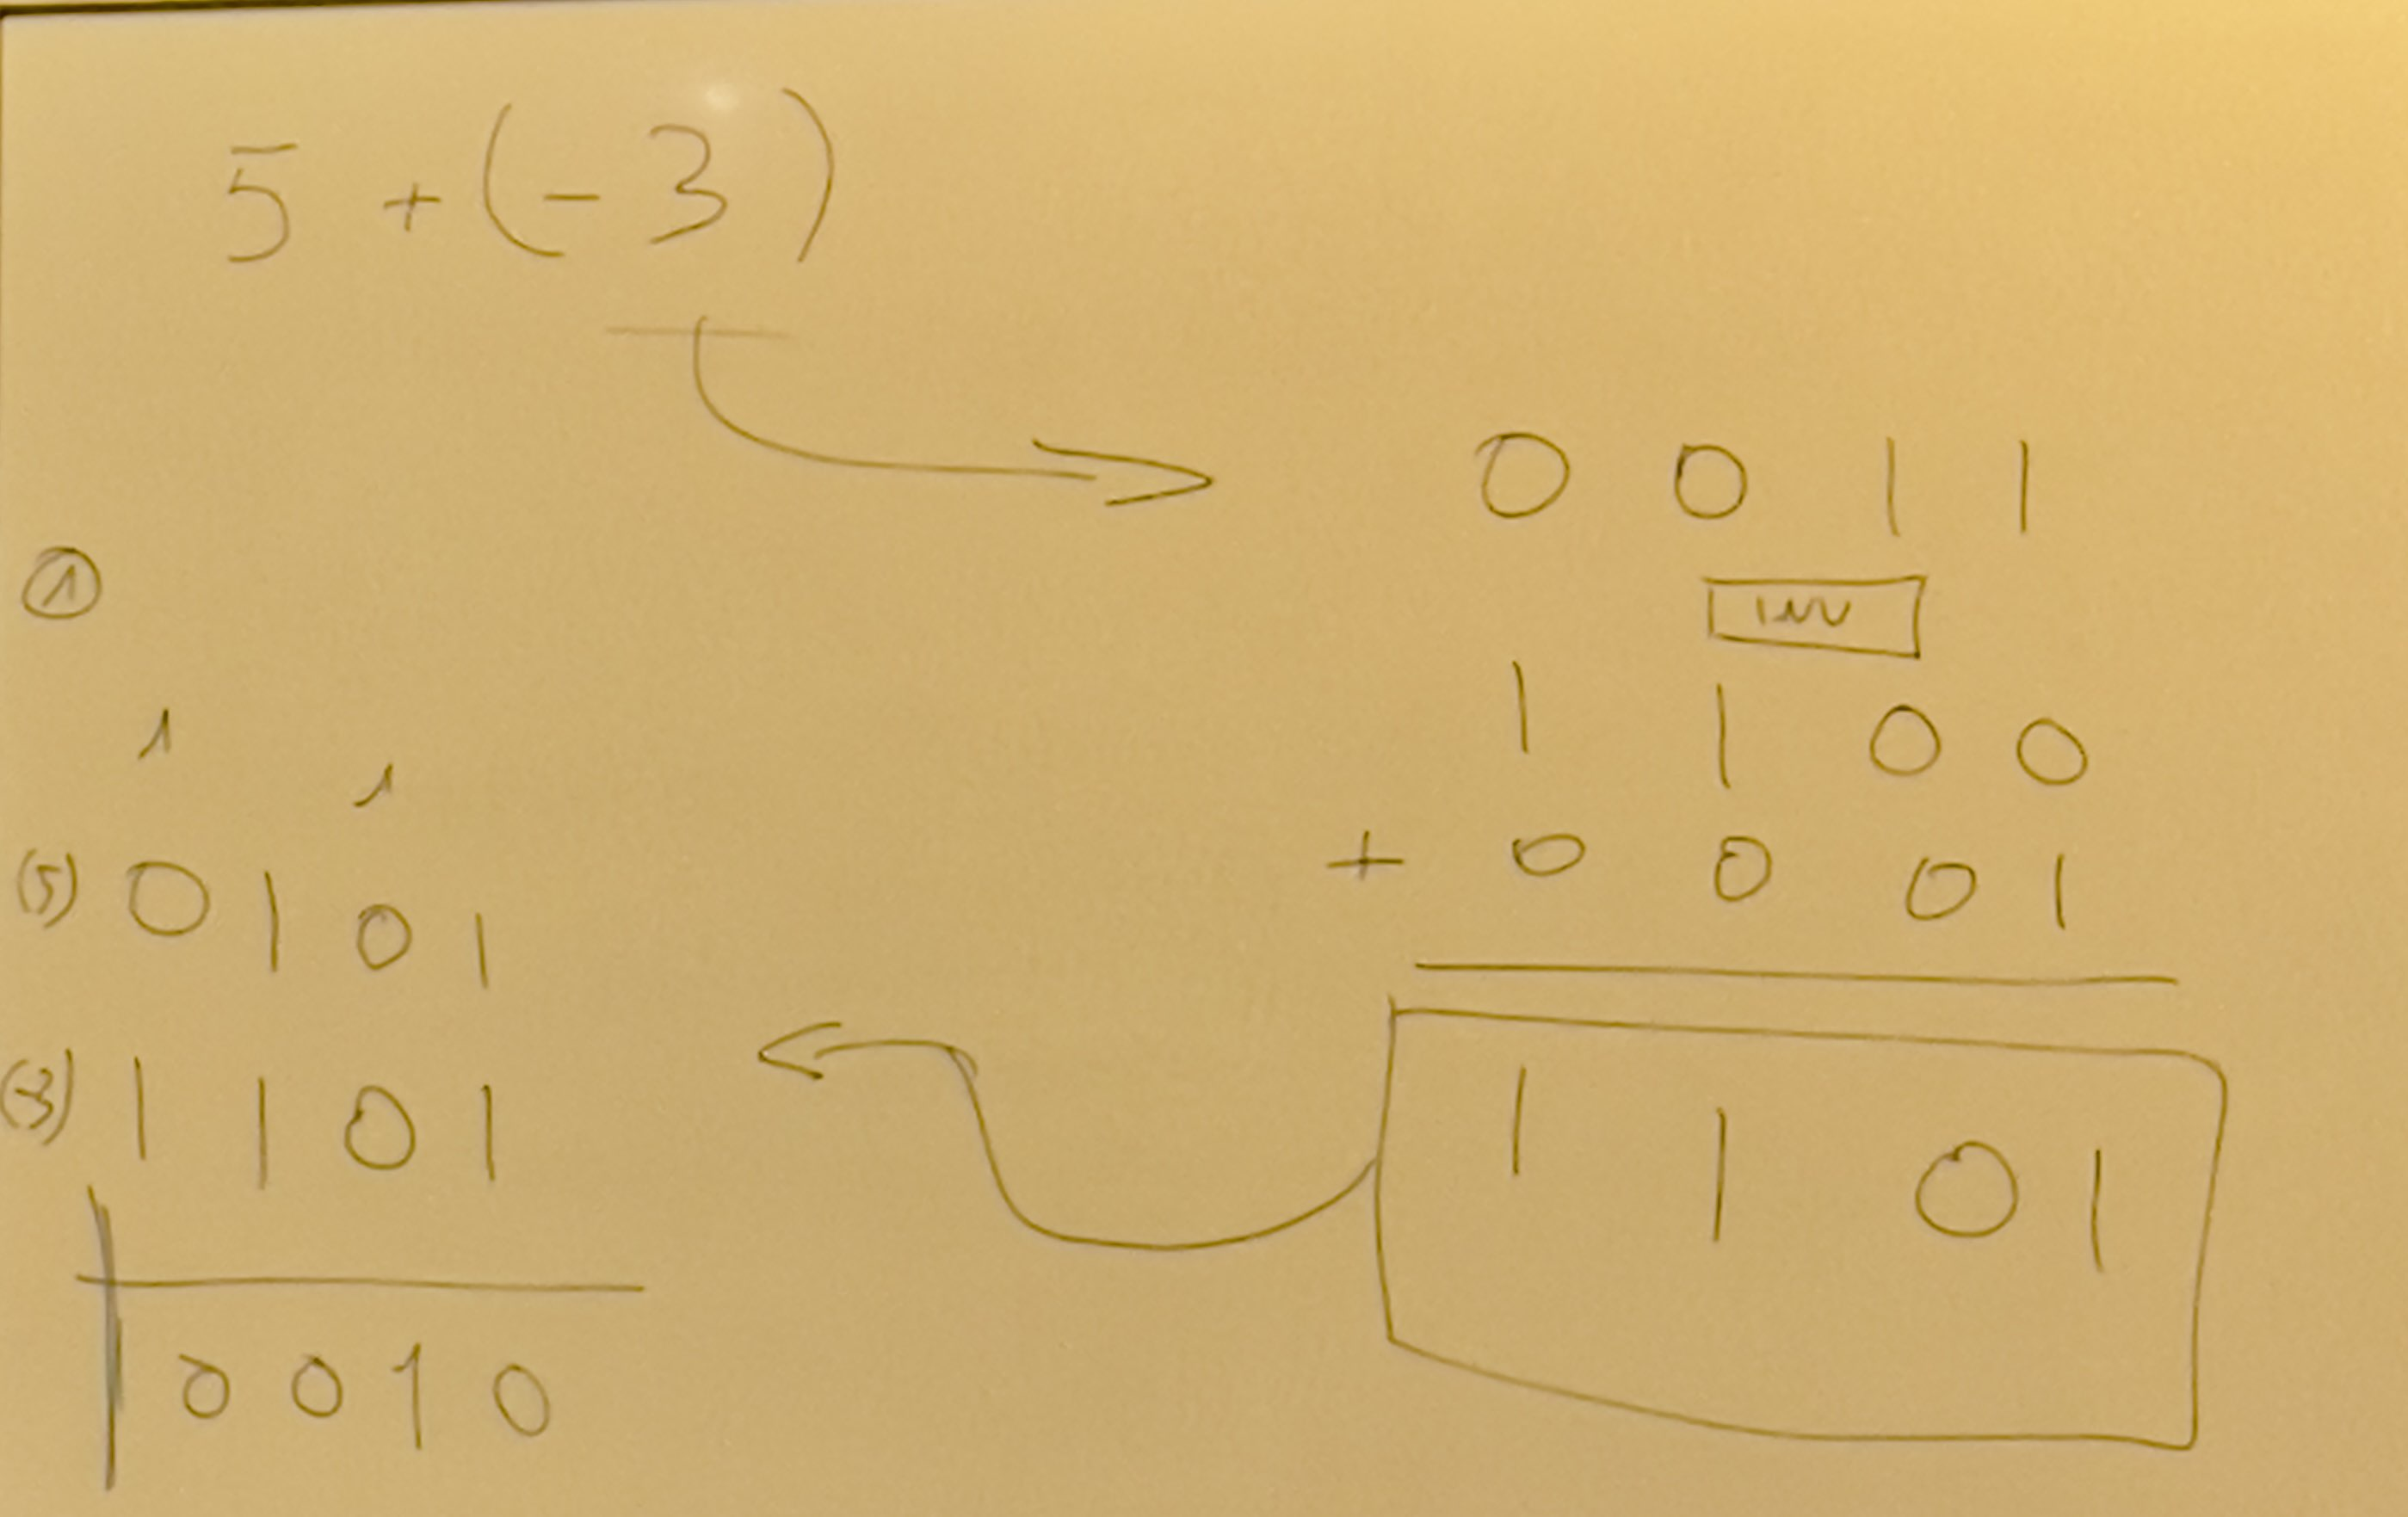 5 + (-3)
0 0 1 1
INV
1 1 0 0
+ 0 0 0 1
1 1 0 1
1
1 1
(5) 0 1 0 1
(-3) 1 1 0 1
0 0 1 0